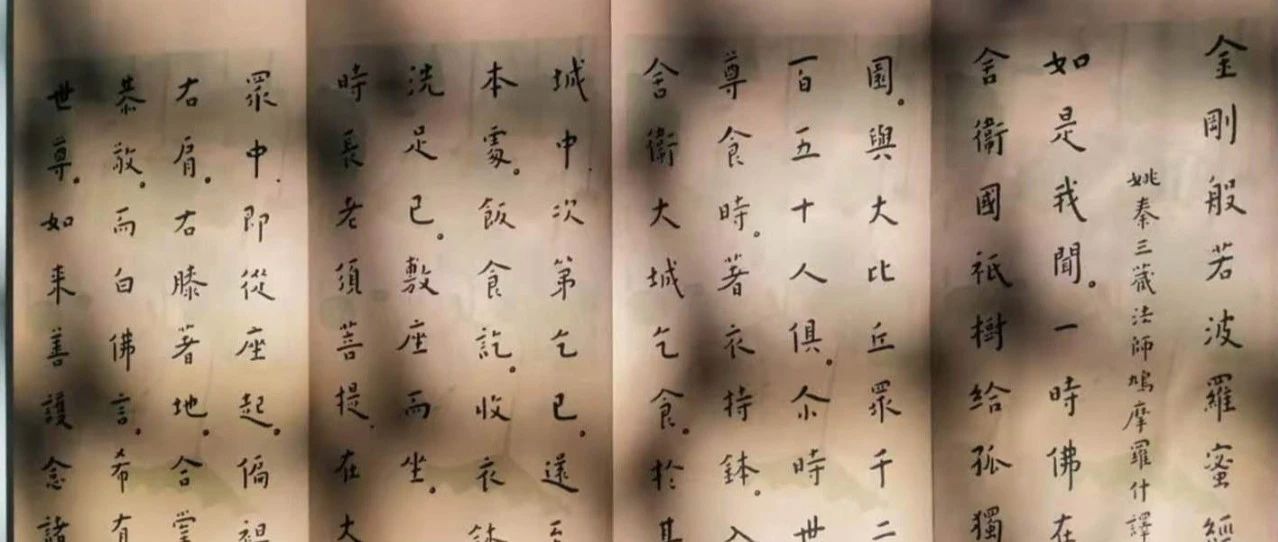 金剛般若波羅蜜經
姚秦三藏法師鳩摩羅什譯
如是我聞。一時佛在
舍衛國祇樹給孤獨
園。與大比丘眾千二
百五十人俱。尒時世
尊食時。著衣持鉢。入
舍衛大城乞食。於其
城中。次第乞已。還至
本處。飯食訖。收衣鉢
洗足已。敷座而坐。
時長老須菩提。在大
眾中。即從座起。偏袒
右肩。右膝著地。合掌
恭敬。而白佛言。希有
世尊。如来善護念諸